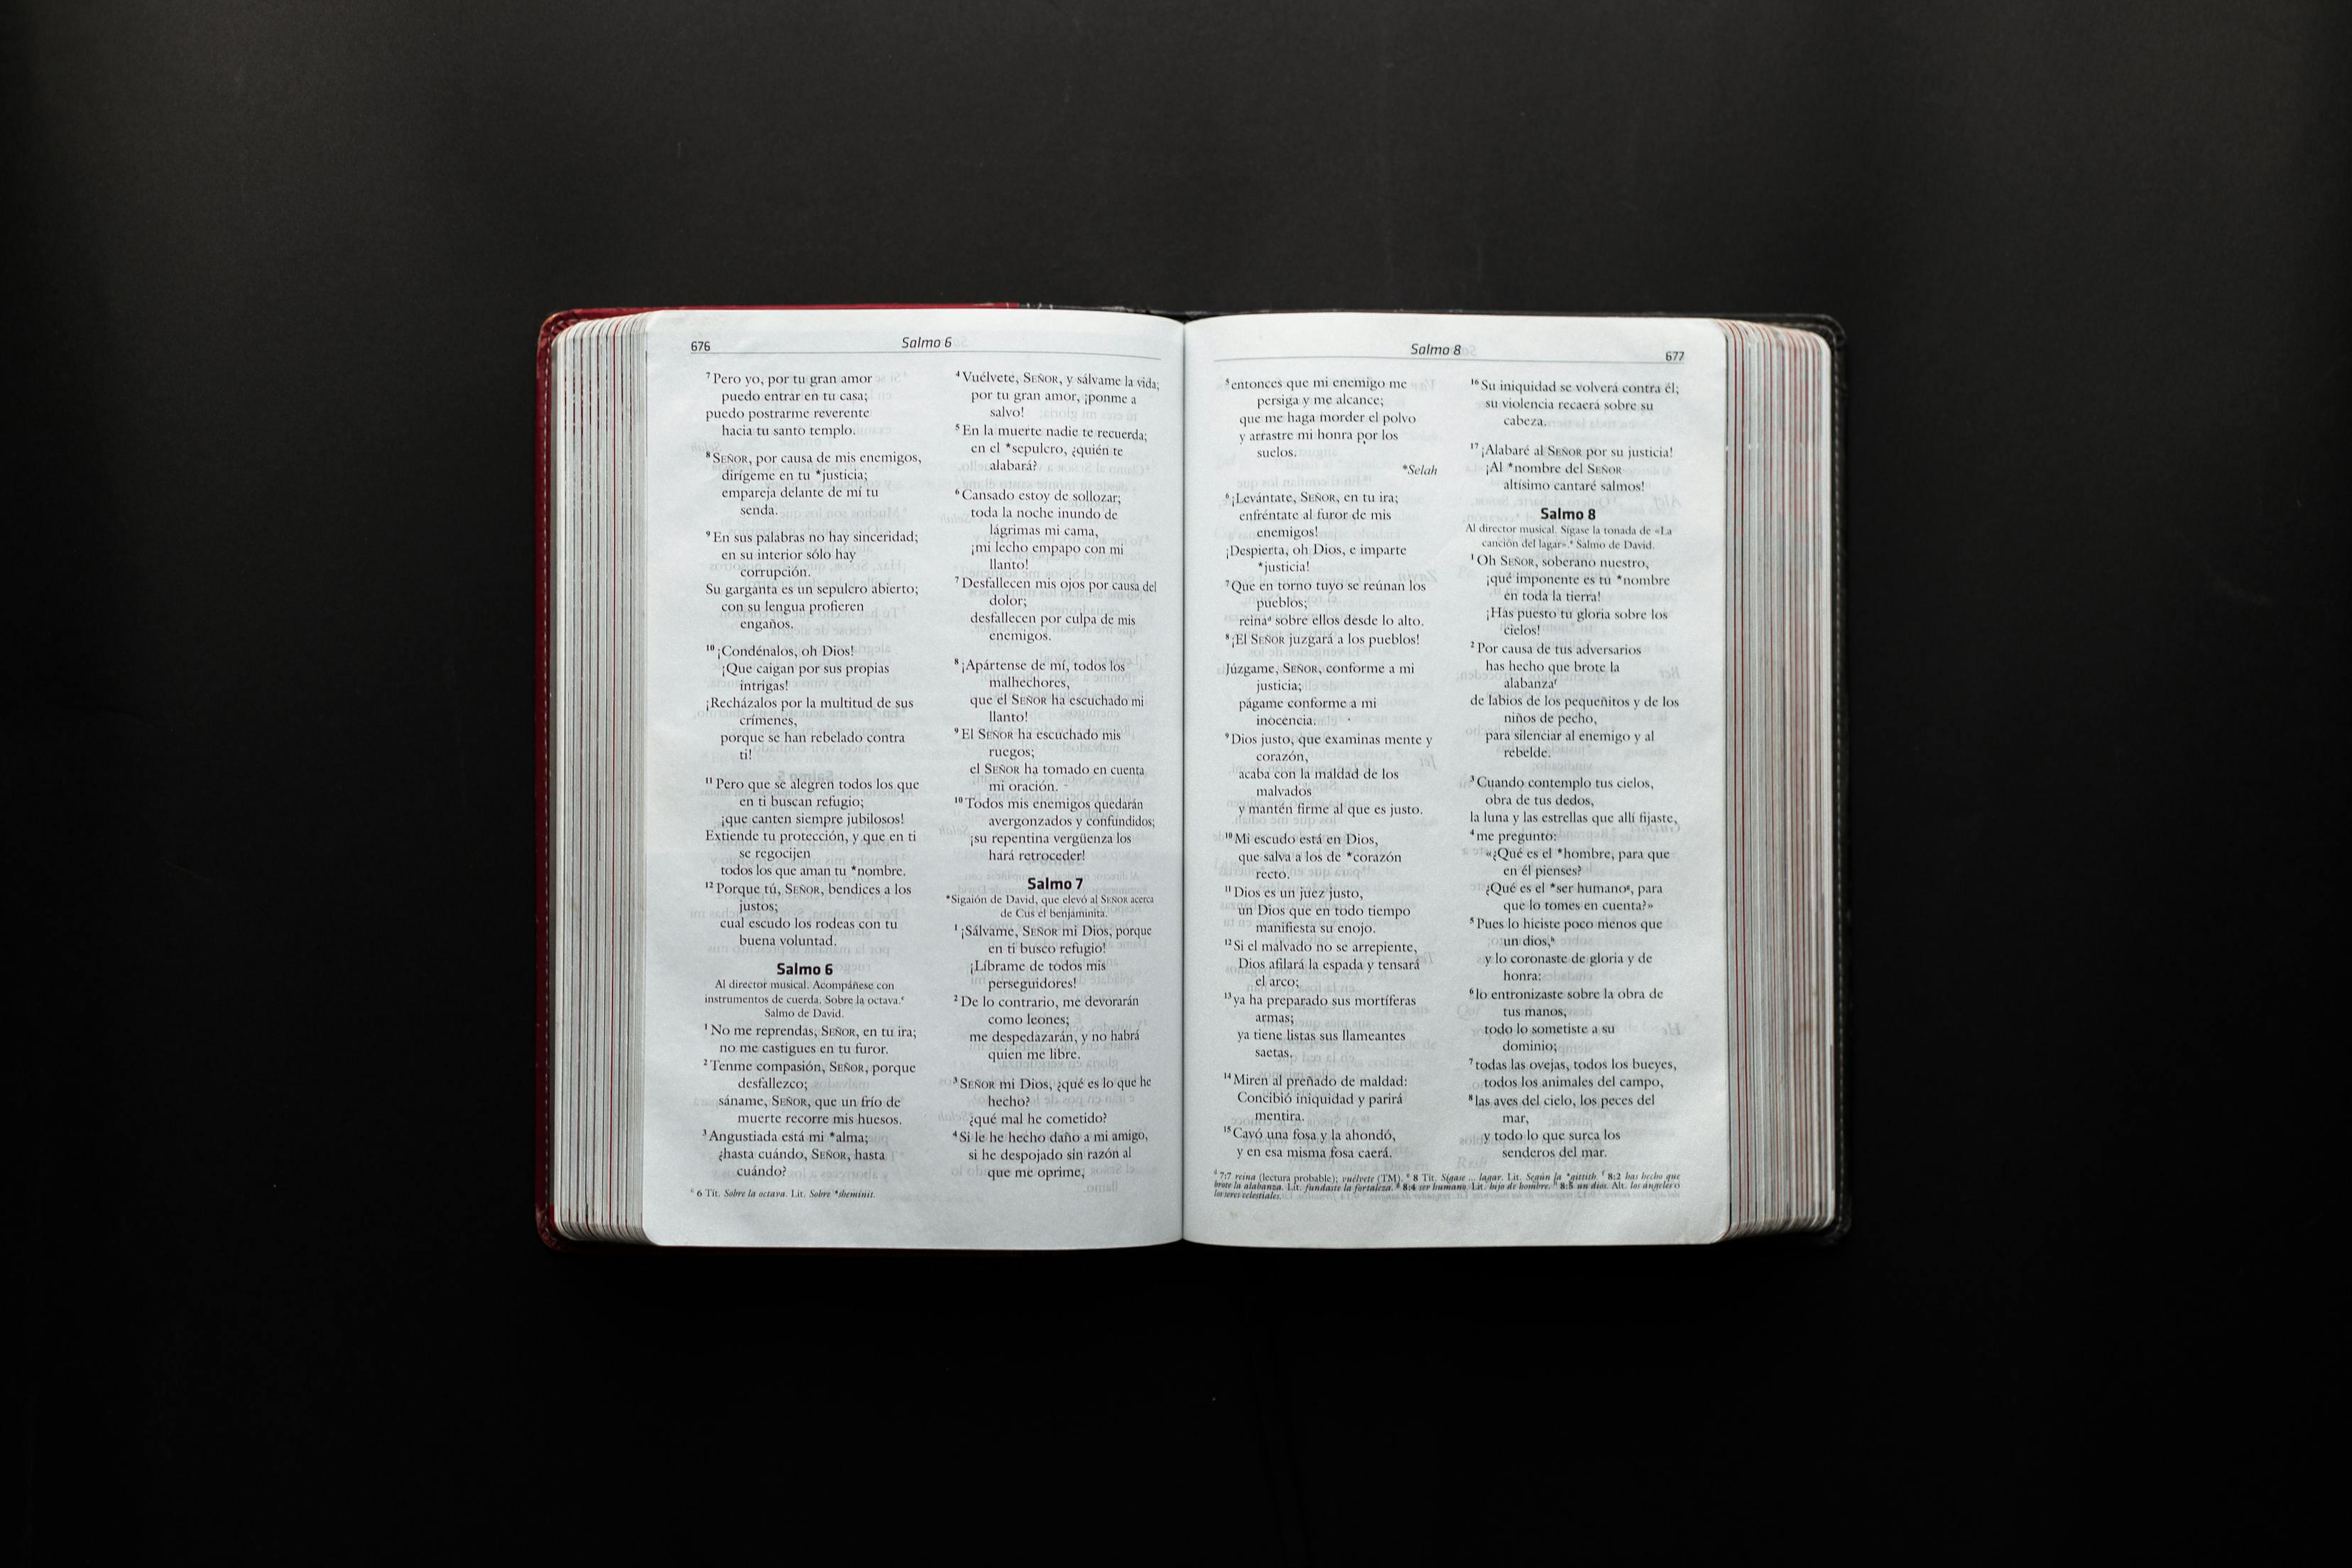 676
Salmo 6
⁷ Pero yo, por tu gran amor
puedo entrar en tu casa;
puedo postrarme reverente
hacia tu santo templo.
⁸ SEÑOR, por causa de mis enemigos,
dirígeme en tu *justicia;
empareja delante de mí tu
senda.
⁹ En sus palabras no hay sinceridad;
en su interior sólo hay
corrupción.
Su garganta es un sepulcro abierto;
con su lengua profieren
engaños.
¹⁰ ¡Condénalos, oh Dios!
¡Que caigan por sus propias
intrigas!
¡Recházalos por la multitud de sus
crímenes,
porque se han rebelado contra
ti!
¹¹ Pero que se alegren todos los que
en ti buscan refugio;
¡que canten siempre jubilosos!
Extiende tu protección, y que en ti
se regocijen
todos los que aman tu *nombre.
¹² Porque tú, SEÑOR, bendices a los
justos;
cual escudo los rodeas con tu
buena voluntad.
Salmo 6
Al director musical. Acompáñese con
instrumentos de cuerda. Sobre la octava.ᶜ
Salmo de David.
¹ No me reprendas, SEÑOR, en tu ira;
no me castigues en tu furor.
² Tenme compasión, SEÑOR, porque
desfallezco;
sáname, SEÑOR, que un frío de
muerte recorre mis huesos.
³ Angustiada está mi *alma;
¿hasta cuándo, SEÑOR, hasta
cuándo?
⁴ Vuélvete, SEÑOR, y sálvame la vida;
por tu gran amor, ¡ponme a
salvo!
⁵ En la muerte nadie te recuerda;
en el *sepulcro, ¿quién te
alabará?
⁶ Cansado estoy de sollozar;
toda la noche inundo de
lágrimas mi cama,
¡mi lecho empapo con mi
llanto!
⁷ Desfallecen mis ojos por causa del
dolor;
desfallecen por culpa de mis
enemigos.
⁸ ¡Apártense de mí, todos los
malhechores,
que el SEÑOR ha escuchado mi
llanto!
⁹ El SEÑOR ha escuchado mis
ruegos;
el SEÑOR ha tomado en cuenta
mi oración.
¹⁰ Todos mis enemigos quedarán
avergonzados y confundidos;
¡su repentina vergüenza los
hará retroceder!
Salmo 7
*Sigaión de David, que elevó al SEÑOR acerca
de Cus el benjaminita.
¹ ¡Sálvame, SEÑOR mi Dios, porque
en ti busco refugio!
¡Líbrame de todos mis
perseguidores!
² De lo contrario, me devorarán
como leones;
me despedazarán, y no habrá
quien me libre.
³ SEÑOR mi Dios, ¿qué es lo que he
hecho?
¿qué mal he cometido?
⁴ Si le he hecho daño a mi amigo,
si he despojado sin razón al
que me oprime,
6 Tít. Sobre la octava. Lit. Sobre *sheminit.
Salmo 8
677
⁵ entonces que mi enemigo me
persiga y me alcance;
que me haga morder el polvo
y arrastre mi honra por los
suelos.
*Selah
⁶ ¡Levántate, SEÑOR, en tu ira;
enfréntate al furor de mis
enemigos!
¡Despierta, oh Dios, e imparte
*justicia!
⁷ Que en torno tuyo se reúnan los
pueblos;
reinaᵈ sobre ellos desde lo alto.
⁸ ¡El SEÑOR juzgará a los pueblos!
Júzgame, SEÑOR, conforme a mi
justicia;
págame conforme a mi
inocencia.
⁹ Dios justo, que examinas mente y
corazón,
acaba con la maldad de los
malvados
y mantén firme al que es justo.
¹⁰ Mi escudo está en Dios,
que salva a los de *corazón
recto.
¹¹ Dios es un juez justo,
un Dios que en todo tiempo
manifiesta su enojo.
¹² Si el malvado no se arrepiente,
Dios afilará la espada y tensará
el arco;
¹³ ya ha preparado sus mortíferas
armas;
ya tiene listas sus llameantes
saetas.
¹⁴ Miren al preñado de maldad:
Concibió iniquidad y parirá
mentira.
¹⁵ Cavó una fosa y la ahondó,
y en esa misma fosa caerá.
¹⁶ Su iniquidad se volverá contra él;
su violencia recaerá sobre su
cabeza.
¹⁷ ¡Alabaré al SEÑOR por su justicia!
¡Al *nombre del SEÑOR
altísimo cantaré salmos!
Salmo 8
Al director musical. Sígase la tonada de «La
canción del lagar».ᵉ Salmo de David.
¹ Oh SEÑOR, soberano nuestro,
¡qué imponente es tu *nombre
en toda la tierra!
¡Has puesto tu gloria sobre los
cielos!
² Por causa de tus adversarios
has hecho que brote la
alabanzaᶠ
de labios de los pequeñitos y de los
niños de pecho,
para silenciar al enemigo y al
rebelde.
³ Cuando contemplo tus cielos,
obra de tus dedos,
la luna y las estrellas que allí fijaste,
⁴ me pregunto:
«¿Qué es el *hombre, para que
en él pienses?
¿Qué es el *ser humanoᵍ, para
que lo tomes en cuenta?»
⁵ Pues lo hiciste poco menos que
un dios,ʰ
y lo coronaste de gloria y de
honra:
⁶ lo entronizaste sobre la obra de
tus manos,
todo lo sometiste a su
dominio;
⁷ todas las ovejas, todos los bueyes,
todos los animales del campo,
⁸ las aves del cielo, los peces del
mar,
y todo lo que surca los
senderos del mar.
ᵈ 7:7 reina (lectura probable); vuélvete (TM). ᵉ 8 Tít. Sígase ... lagar. Lit. Según la *gittith. ᶠ 8:2 has hecho que
brote la alabanza. Lit. fundaste la fortaleza. ᵍ 8:4 ser humano. Lit. hijo de hombre. ʰ 8:5 un dios. Alt. los ángeles o
los seres celestiales.